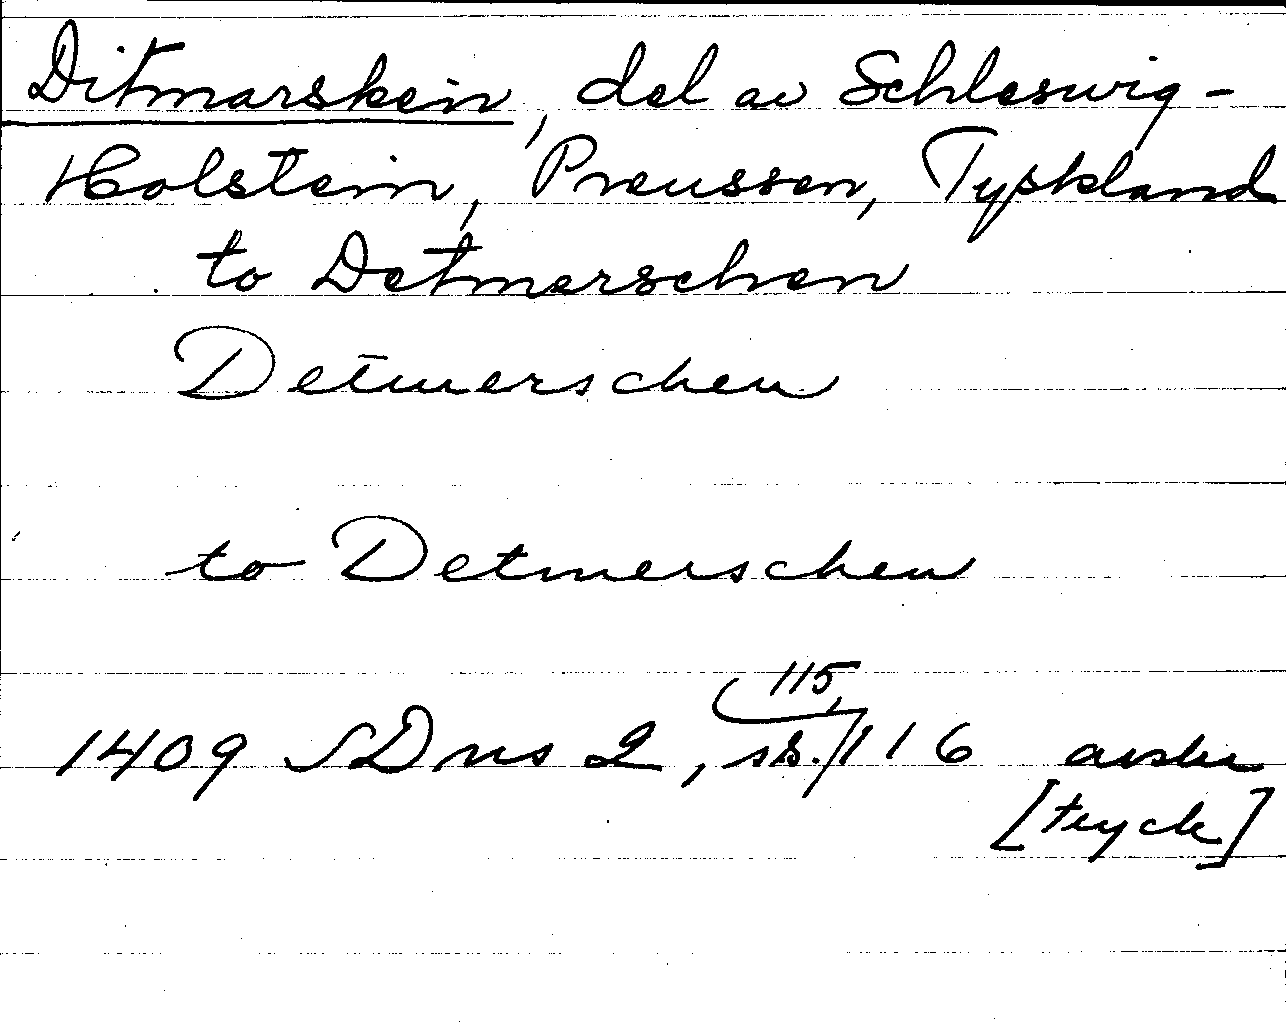 Ditmarsken, del av Schleswig-
Holstein, Preussen, Tyskland
to Detmerschen
Detmerschen
to Detmerschen
1409 SDns 2, sb. 115, 116 avskr
[tryck]